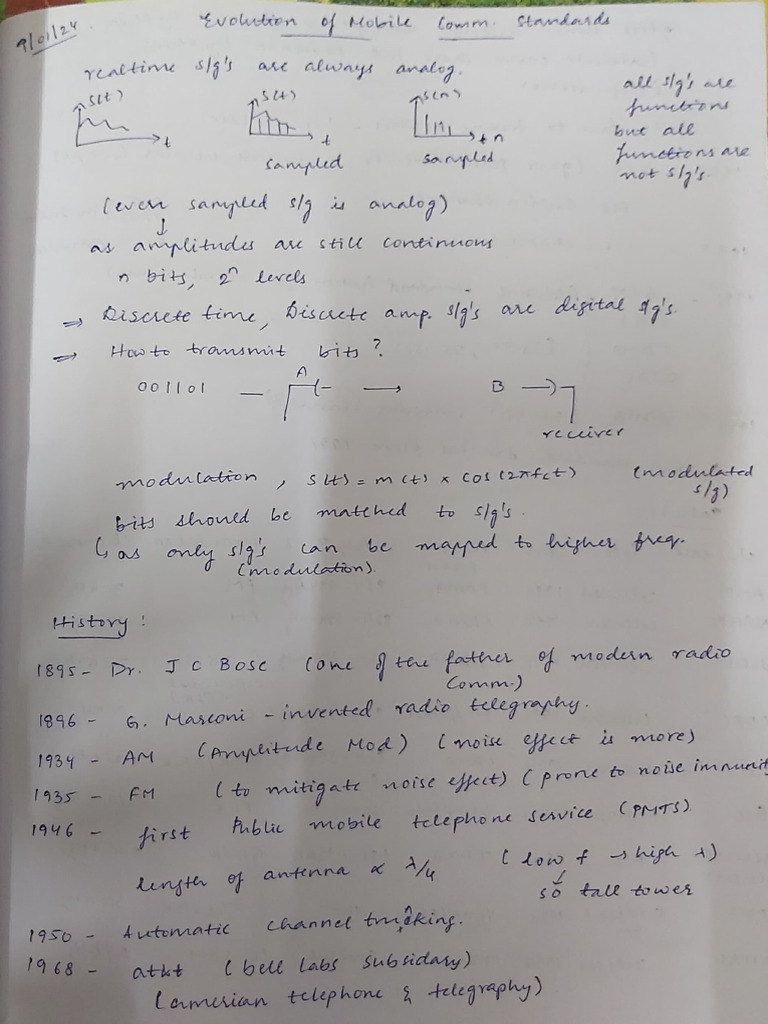 9/01/24
Evolution of Mobile Comm. Standards
realtime s/g's are always analog.
s(t) t
s(t) t
sampled
s(n) t n
sampled
all s/g's are
functions
but all
functions are
not s/g's.
(even sampled s/g is analog)
↓
as amplitudes are still continuous
n bits, 2ⁿ levels
⇒ Discrete time, Discrete amp. s/g's are digital s/g's.
⇒ How to transmit bits?
001101 — A → B
receiver
modulation, s(t) = m(t) x cos(2πfct) (modulated
s/g)
bits should be matched to s/g's.
↳ as only s/g's can be mapped to higher freq.
(modulation).
History :
1895 - Dr. J C Bose (one of the father of modern radio
Comm.)
1896 - G. Marconi - invented radio telegraphy.
1934 - AM (Amplitude Mod) (noise effect is more)
1935 - FM (to mitigate noise effect) (prone to noise immunit
1946 - first Public mobile telephone service (PMTS)
length of antenna ∝ λ/4 (low f → high λ)
↓
so tall tower
1950 - Automatic channel
1968 - at&t (bell Labs subsidary)
(amerian telephone & telegraphy)